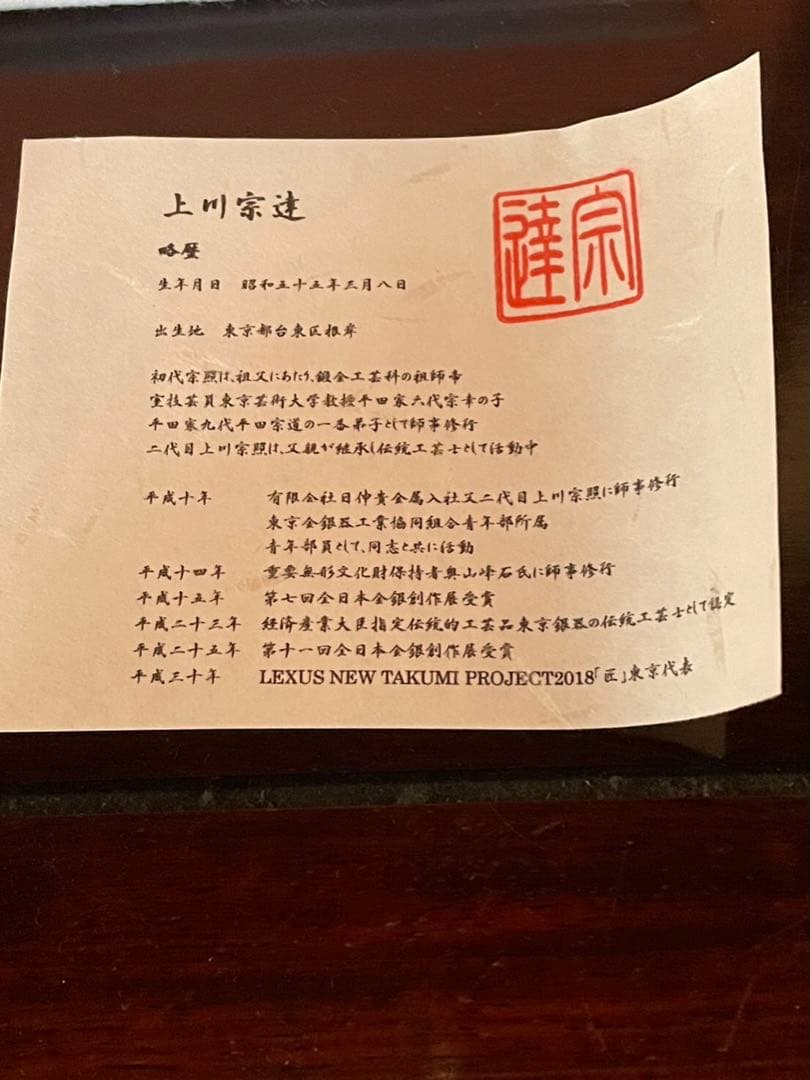 上川宗達
宗達
略歴
生年月日 昭和五十五年三月八日
出生地 東京都台東区根岸
初代宗照は、祖父にあたり、鍛金工芸科の祖師帝
室技芸員東京芸術大学教授平田家六代宗幸の子
平田家九代平田宗道の一番弟子として師事修行
二代目上川宗照は、父親が継承し伝統工芸士として活動中
平成十年 有限会社日伸貴金属入社父二代目上川宗照に師事修行
東京金銀器工業協同組合青年部所属
青年部員として、同志と共に活動
平成十四年 重要無形文化財保持者奥山峰石氏に師事修行
平成十五年 第七回全日本金銀創作展受賞
平成二十三年 経済産業大臣指定伝統的工芸品東京銀器の伝統工芸士として認定
平成二十五年 第十一回全日本金銀創作展受賞
平成三十年 LEXUS NEW TAKUMI PROJECT2018「匠」東京代表